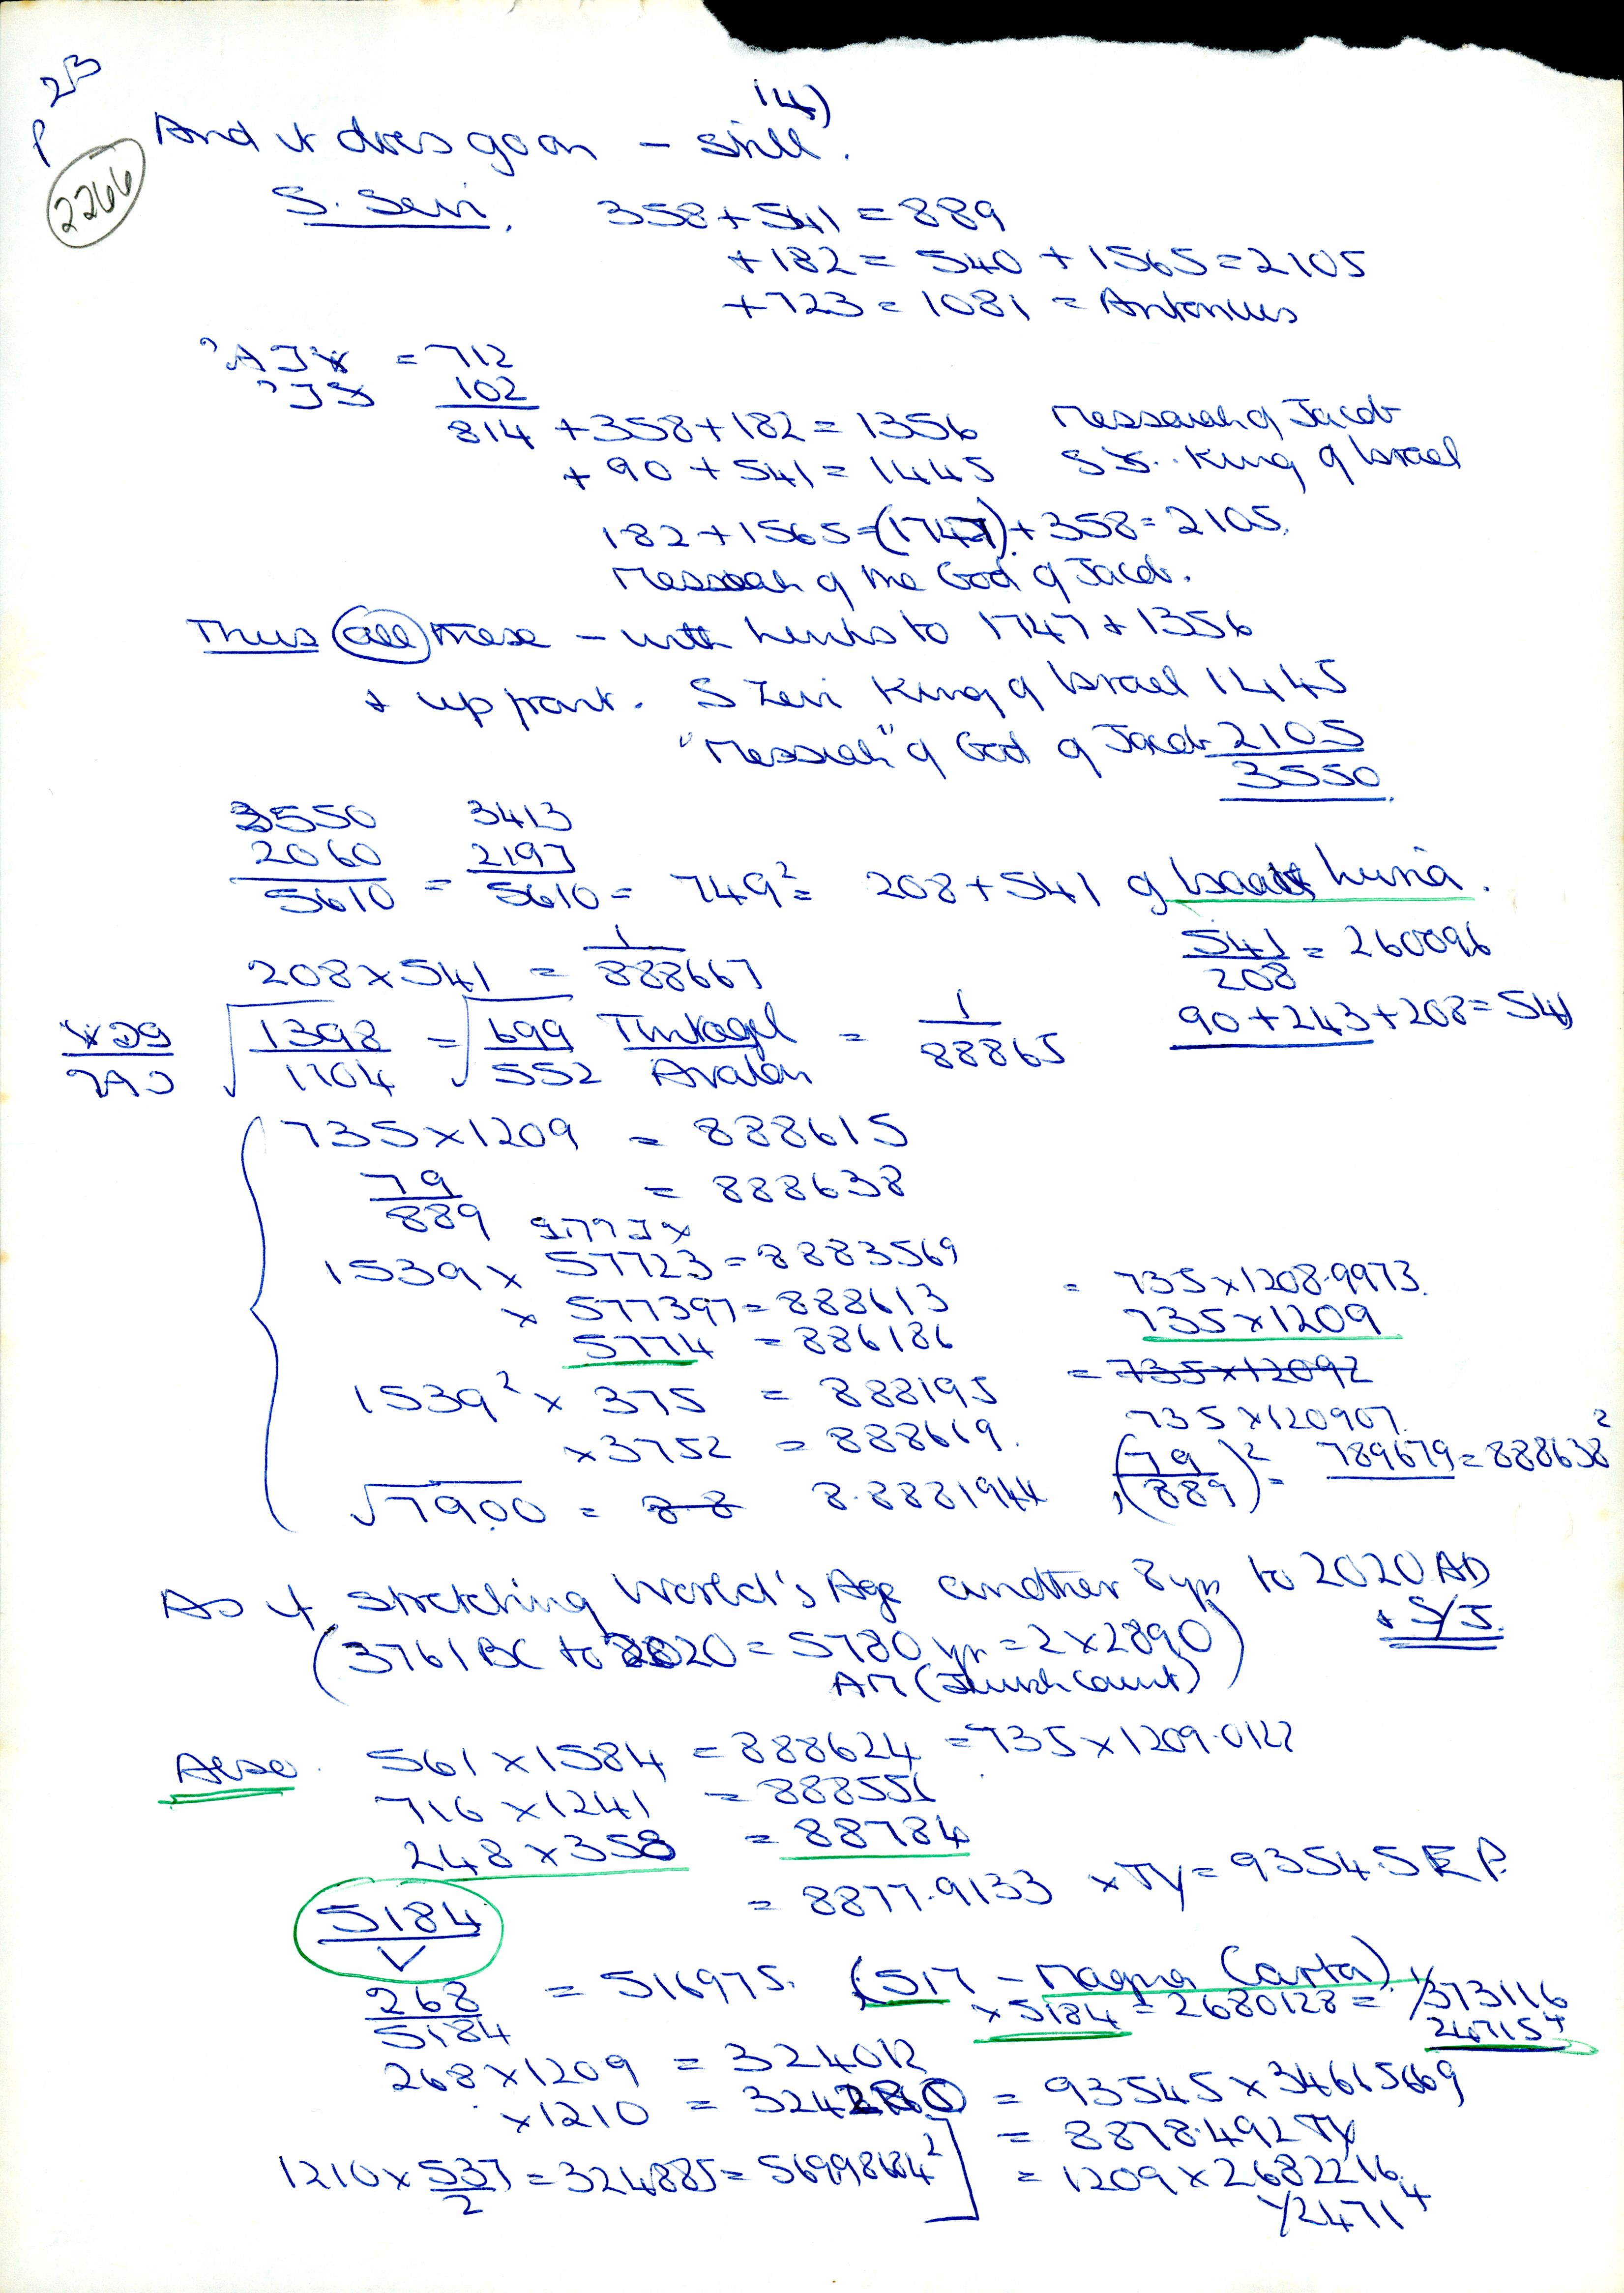 14)
P 23
2266
And it does go on – still.
S. Sevi. 358 + 541 = 889
+ 182 = 540 + 1565 = 2105
+ 723 = 1081 = Antonius
= 712
102
814 + 358 + 182 = 1356 Messaiah of Jacob
+ 90 + 541 = 1445 S S.. King of Israel
182 + 1565 = (1747) + 358 = 2105.
Messiah of the God of Jacob.
Thus all these – with links to 1747 + 1356
+ up front. S Zevi King of Israel 1445
"Messiah" of God of Jacob 2105
3550
3550 3413
2060 2197
5610 = 5610 = 749² = 208 + 541 of Isaac Luria.
541/208 = 260096
208 × 541 = 1/888667
90 + 243 + 208 = 541
√1398/1104 = √699/552 Tintagel/Avalon = 1/88865
735 × 1209 = 888615
79/889 = 888638
1539 × 57723 = 8883569 = 735 × 1208.9973.
× 577397 = 888613 735 × 1209
5774 = 886186
= 735 × 12092
1539² × 375 = 888195
735 × 120907.
× 3752 = 888619.
(79/889)² = 789679 = 888638²
√79.00 = 8 8 8.8881944
As if stretching World's Age another 8 yr to 2020 AD
+ S/J.
(3761 BC to 2020 = 5780 yr = 2 × 2890)
AM (Jewish Count)
Also. 561 × 1584 = 888624 = 735 × 1209.0122
716 × 1241 = 888556
248 × 358 = 88784
= 8877.9133 × TY = 9354.5 E.P.
5184
√
268/5184 = 516975. (517 – Magna Carta)
× 5184 = 2680128 = 1/373116
24715⁴
268 × 1209 = 324012
× 1210 = 324280 = 93545 × 34665669
= 8878.492 TY
1210 × 537/2 = 324885 = 5699864² ] = 1209 × 2682216
1/2471⁴